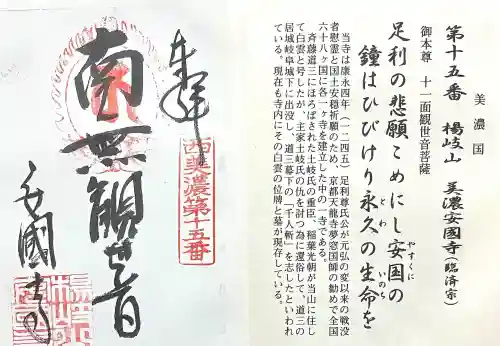 美濃国
第十五番　楊岐山　美濃安國寺（臨済宗）
御本尊　十一面観世音菩薩
足利の悲願こめにし安国の
やすくに
鐘はひびけり永久の生命を
とわ
いのち
当寺は康永四年（一二四五）足利尊氏公が元弘の変以来の戦没
者慰霊と国土安穏祈願のため、京都天龍寺夢窓国師の勧めで全国
六十八ヶ国に各一ヶ寺を建立した中の一寺である。
斉藤道三にほろばされた土岐氏の重臣、稲葉光朝が当山に住し
て白雲と号したが、主家土岐氏の仇を討つ為に還俗して、道三の
居城岐阜城下に出没し、道三暮下の「千人斬」を志したといわれ
ている。現在も寺内にその白雲の位牌と墓が現存している。
拜
西美濃第十五番
南無觀世音
安國寺